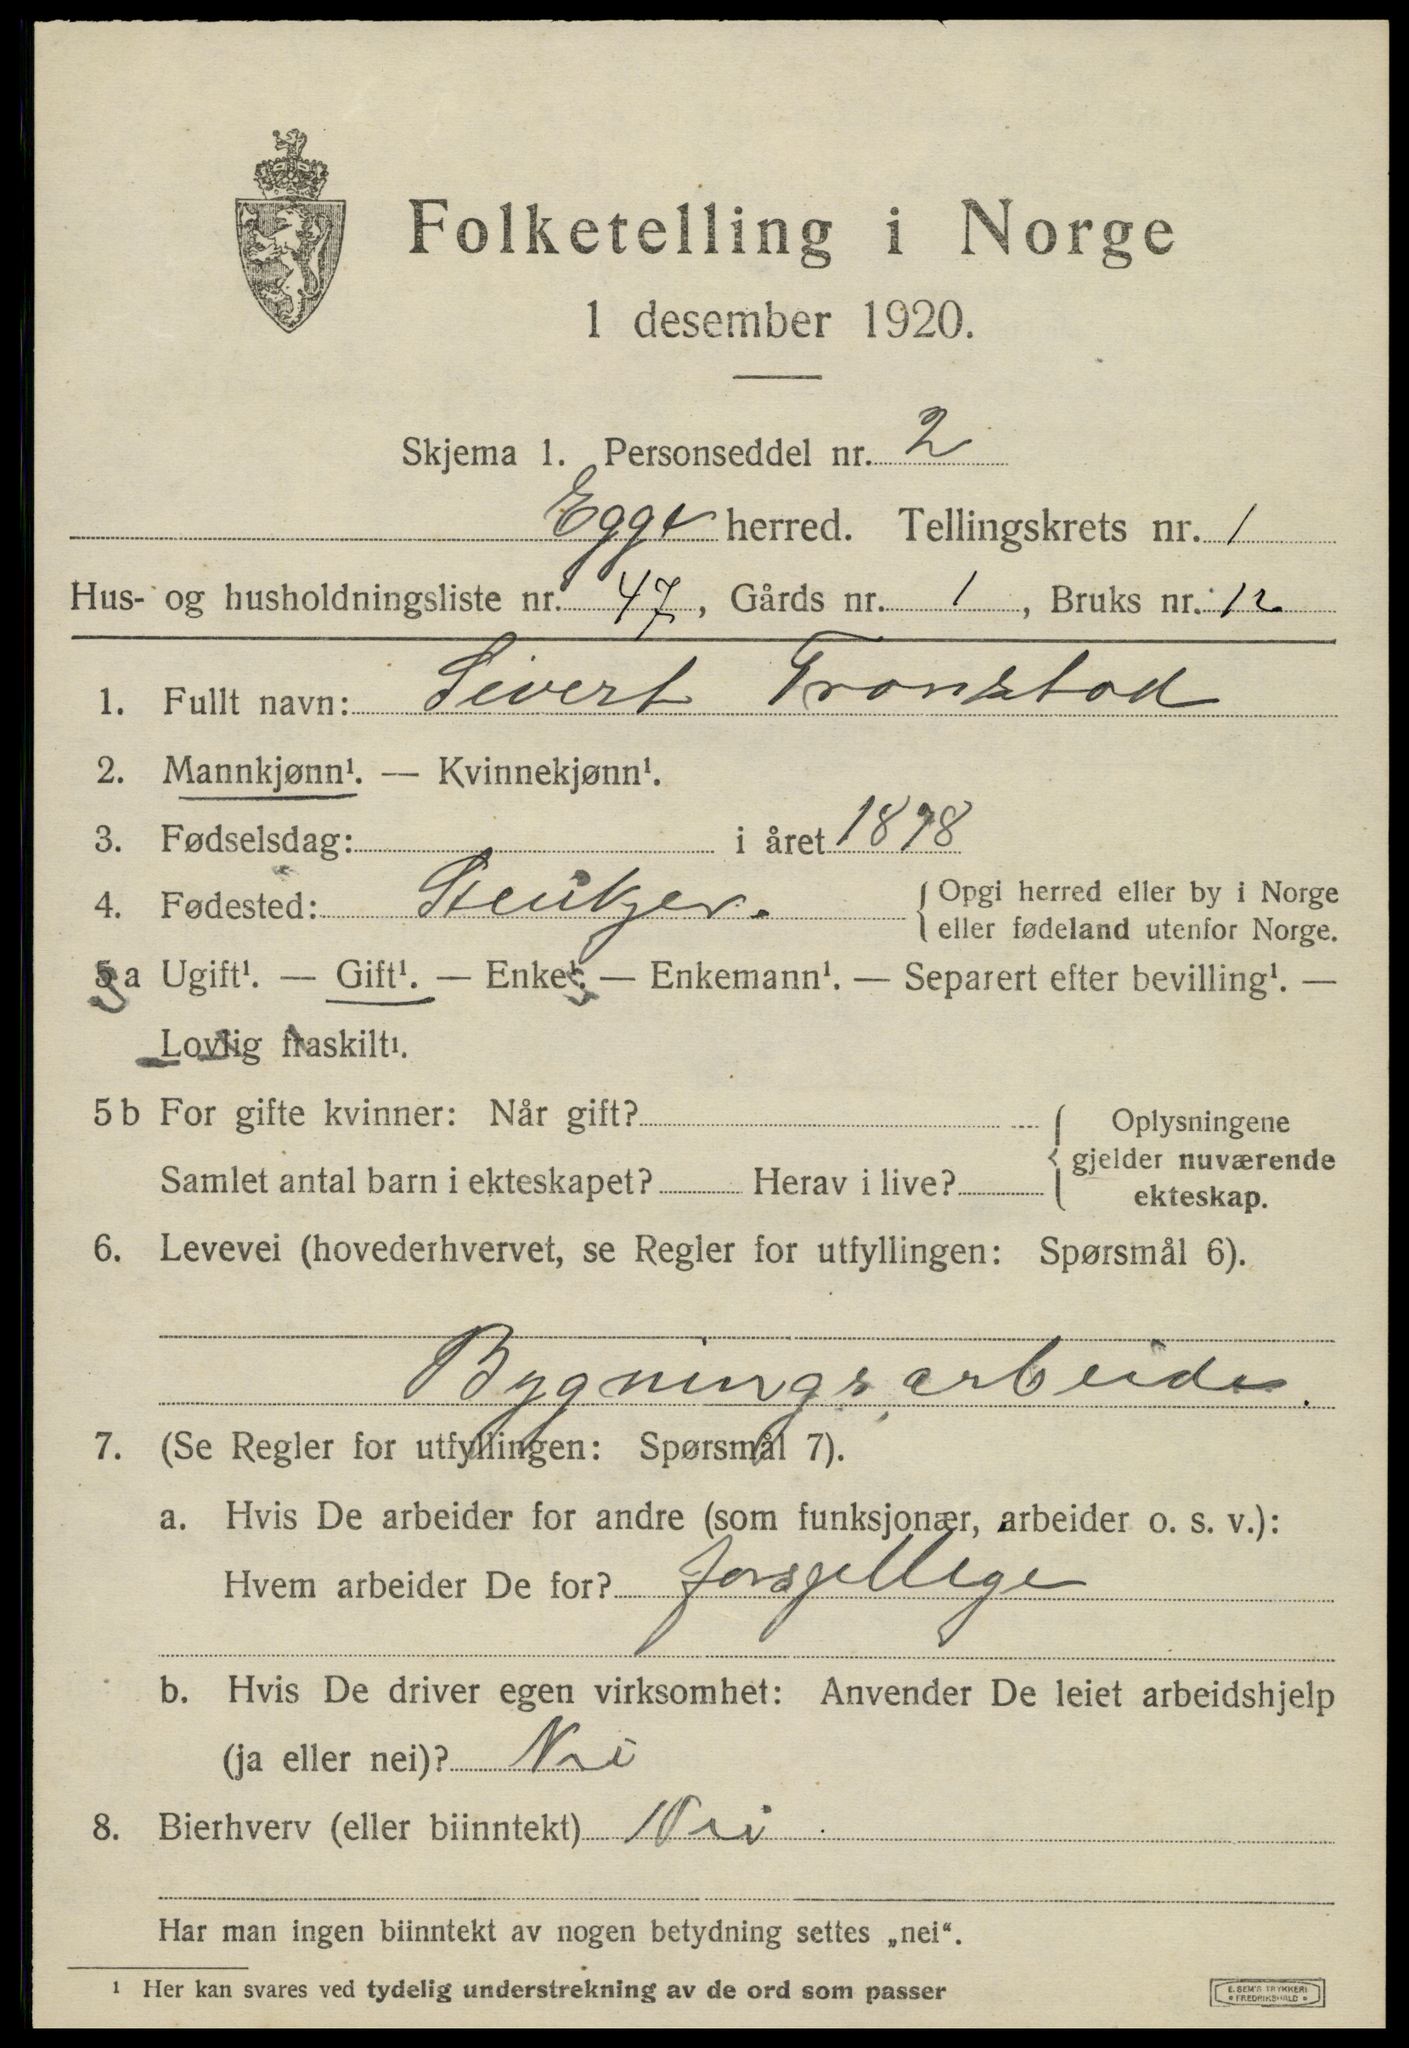 Folketelling i Norge
1 desember 1920.
Skjema 1. Personseddel nr. 2
Egge herred. Tellingskrets nr. 1
Hus- og husholdningsliste nr. 47, Gårds nr. 1, Bruks nr. 12
1. Fullt navn: Sivert Tronstad
2. Mannkjønn¹. — Kvinnekjønn¹.
3. Fødselsdag: i året 1898
4. Fødested: Steinkjer. { Opgi herred eller by i Norge
eller fødeland utenfor Norge.
5a Ugift¹. — Gift¹. — Enke¹. — Enkemann¹. — Separert efter bevilling¹. —
Lovlig fraskilt¹.
5b For gifte kvinner: Når gift? { Oplysningene
gjelder nuværende
Samlet antal barn i ekteskapet? Herav i live?
ekteskap.
6. Levevei (hovederhvervet, se Regler for utfyllingen: Spørsmål 6).
Bygningsarbeide.
7. (Se Regler for utfyllingen: Spørsmål 7).
a. Hvis De arbeider for andre (som funksjonær, arbeider o. s. v.):
Hvem arbeider De for? forsjellige
b. Hvis De driver egen virksomhet: Anvender De leiet arbeidshjelp
(ja eller nei)? Nei
8. Bierhverv (eller biinntekt) Nei
Har man ingen biinntekt av nogen betydning settes „nei“.
¹ Her kan svares ved tydelig understrekning av de ord som passer
E. SEM'S TRYKKERI
FREDRIKSHALD